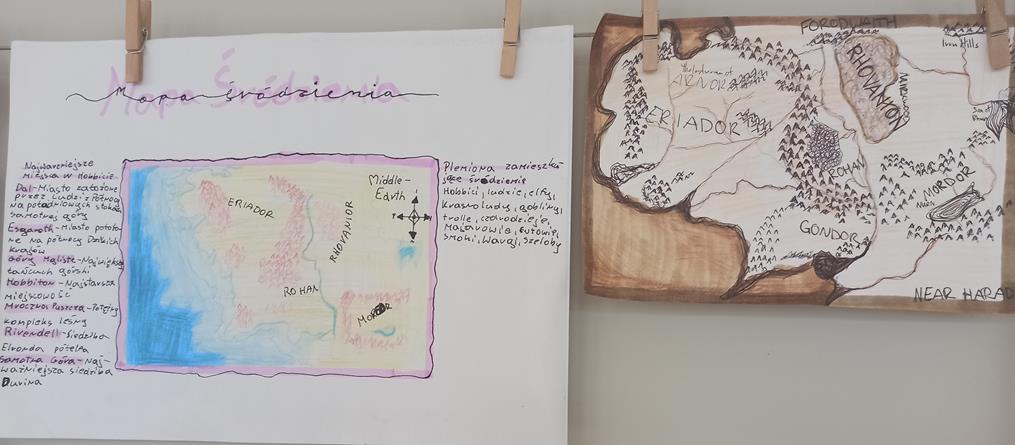 Mapa śródziemia
Najważniejsze
miejsca w Hobbicie
Dal-Miasto założone
przez ludzi z Północy
na południowych stokach
samotnej góry
Esgaroth-Miasto położo-
ne na północy Dzikich
krajów
Góry Mgliste-Największy
łańcuch górski
Hobbiton-Najstarsza
miejscowość
Mroczna Puszcza-Potężny
kompleks leśny
Rivendell-siedziba
Elronda półelfa
Samotna Góra-Naj-
ważniejsza siedziba
Durina
ERIADOR
RHOVANIOR
ROHAN
MORDOR
Middle-
Earth
Plemiona zamieszku-
jące śródziemie
Hobbici, ludzie, elfy,
Krasnoludy, gobliny,
trolle, czarodzieje,
Majarowie, Entowie,
Smoki, Wargi, Szeloby
FORODWAITH
Iron Hills
RHOVANION
MIRKWOOD
ARNOR
ERIADOR
ROHAN
MORDOR
GONDOR
NEAR HARAD